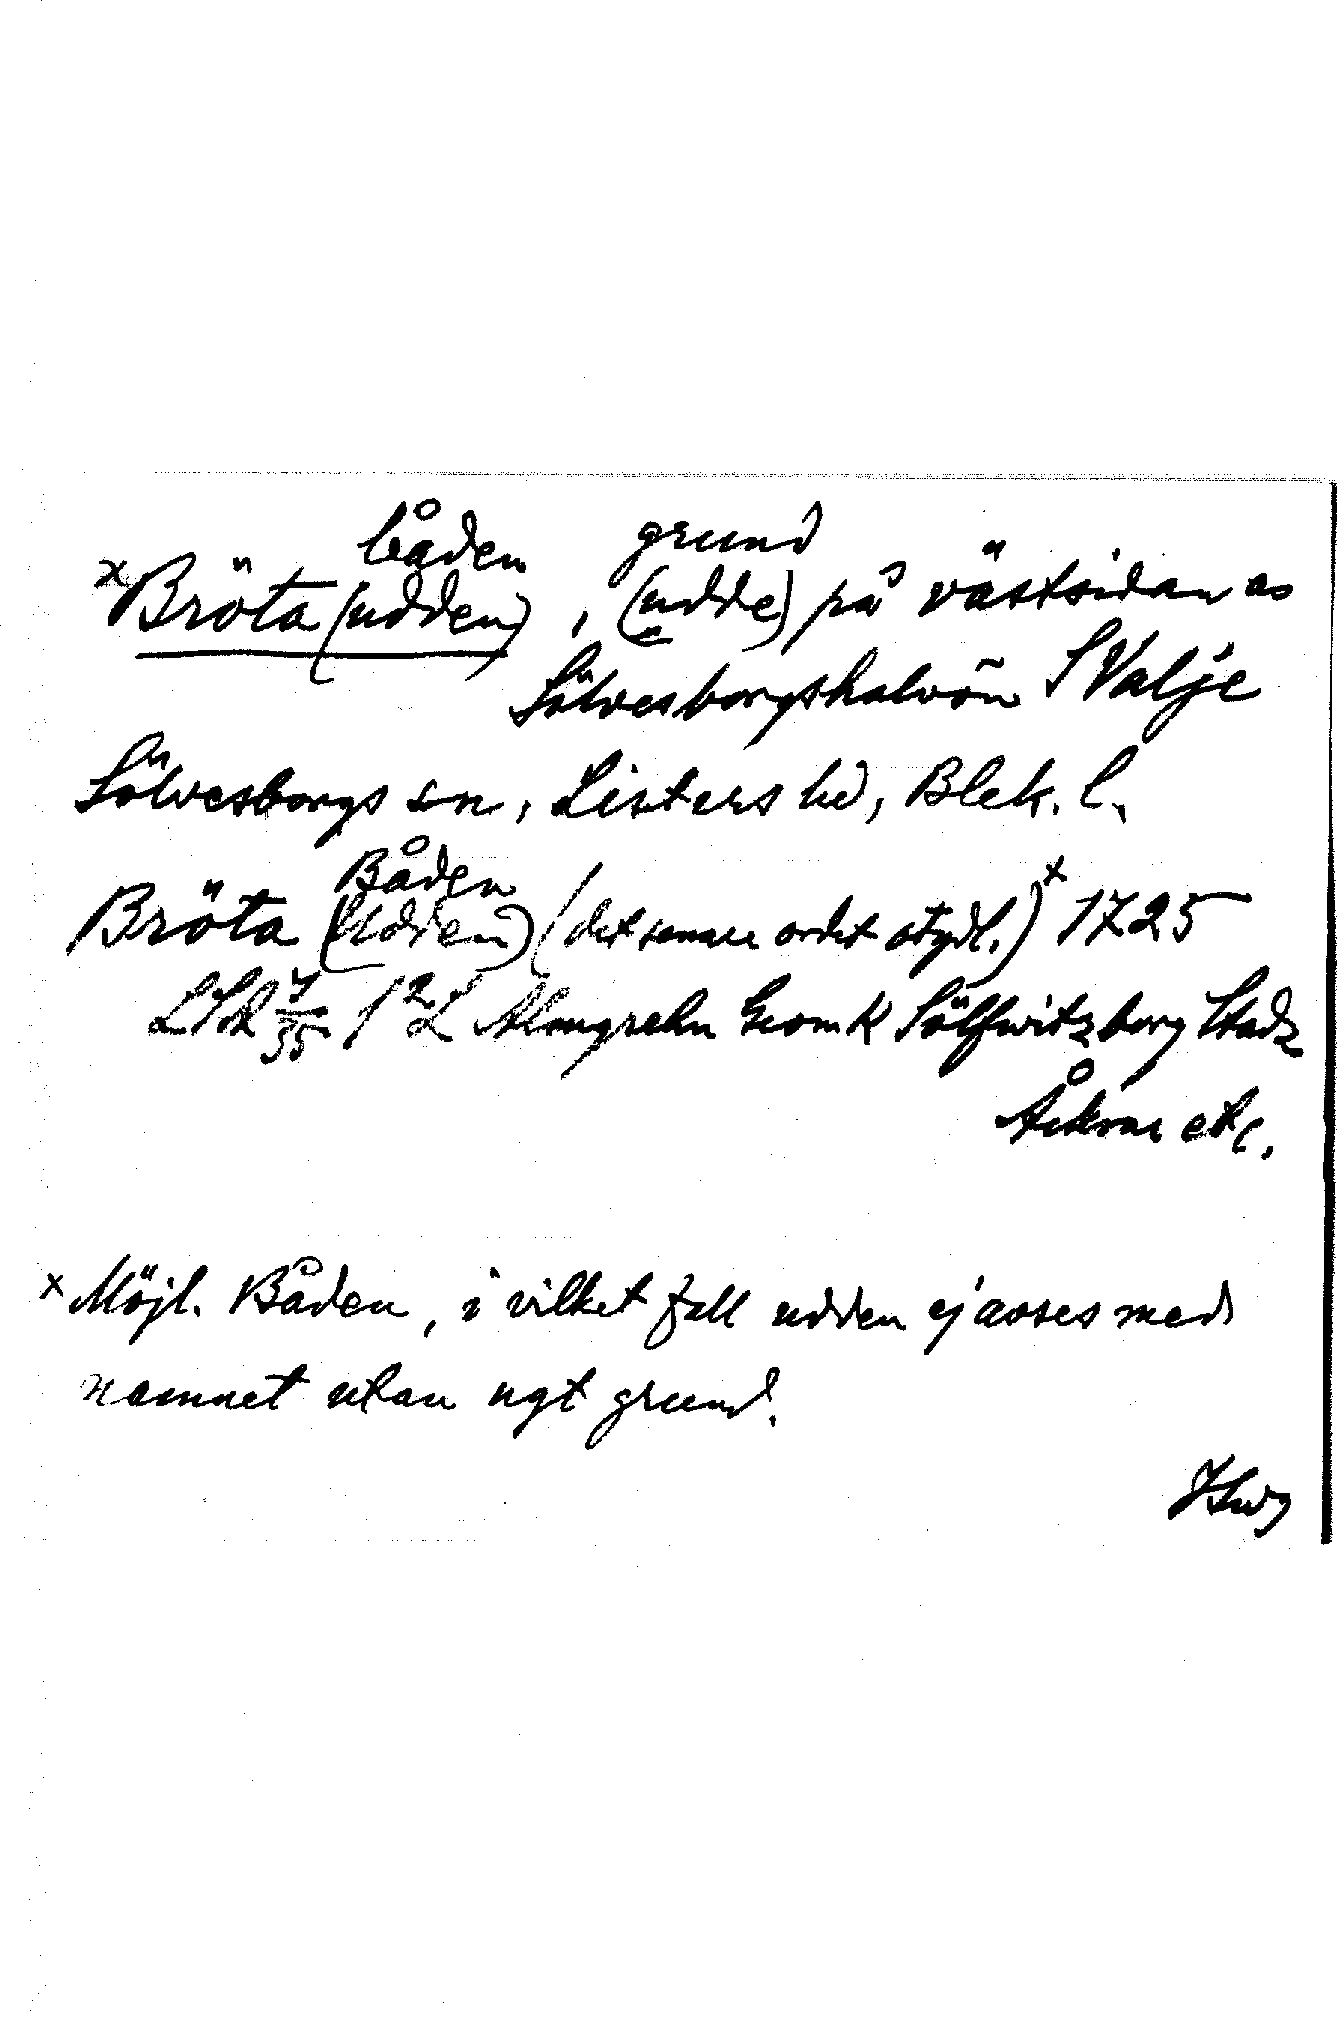 båden grund
x Bröta (udden), (udde) på västsidan av
Sölvesborgshalvön S Valje
Sölvesborgs sn, Listers hd, Blek. l.
Båden
Bröta (Udden) (det senare ordet otydl.)x 1725
LSA 7/35 1²L Almgrehn Geom K Sölfwitzborg Stadz
Åkrar etc.
x Möjl. Båden, i vilket fall udden ej avses med
namnet utan ngt grund.